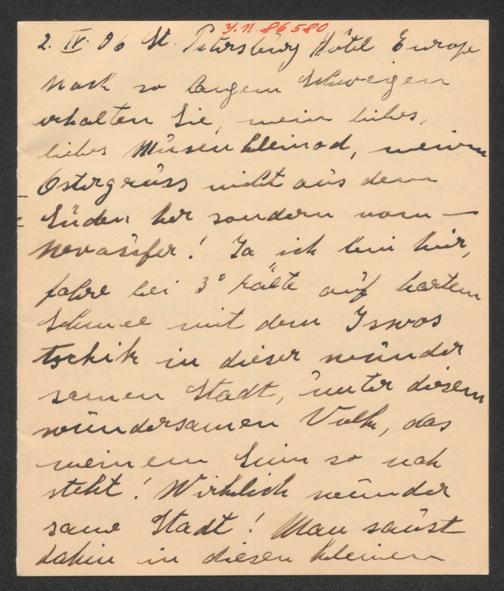 J. N. 86580
2. IV. 06 St. Petersburg Hôtel Europe
Nach so langem Schweigen
erhalten Sie, mein liebes,
liebes Musenkleinod, meinen
Ostergruss nicht aus dem
Süden her sondern vom —
Newaufer! Ja ich bin hier,
fahre bei 3° Kälte auf hartem
Schnee mit dem Iswos
tschik in dieser wunder
samen Stadt, unter diesem
wundersamen Volk, das
meinem Sinn so nah
steht! Wirklich wunder
same Stadt! Man saust
dahin in diesen kleinen